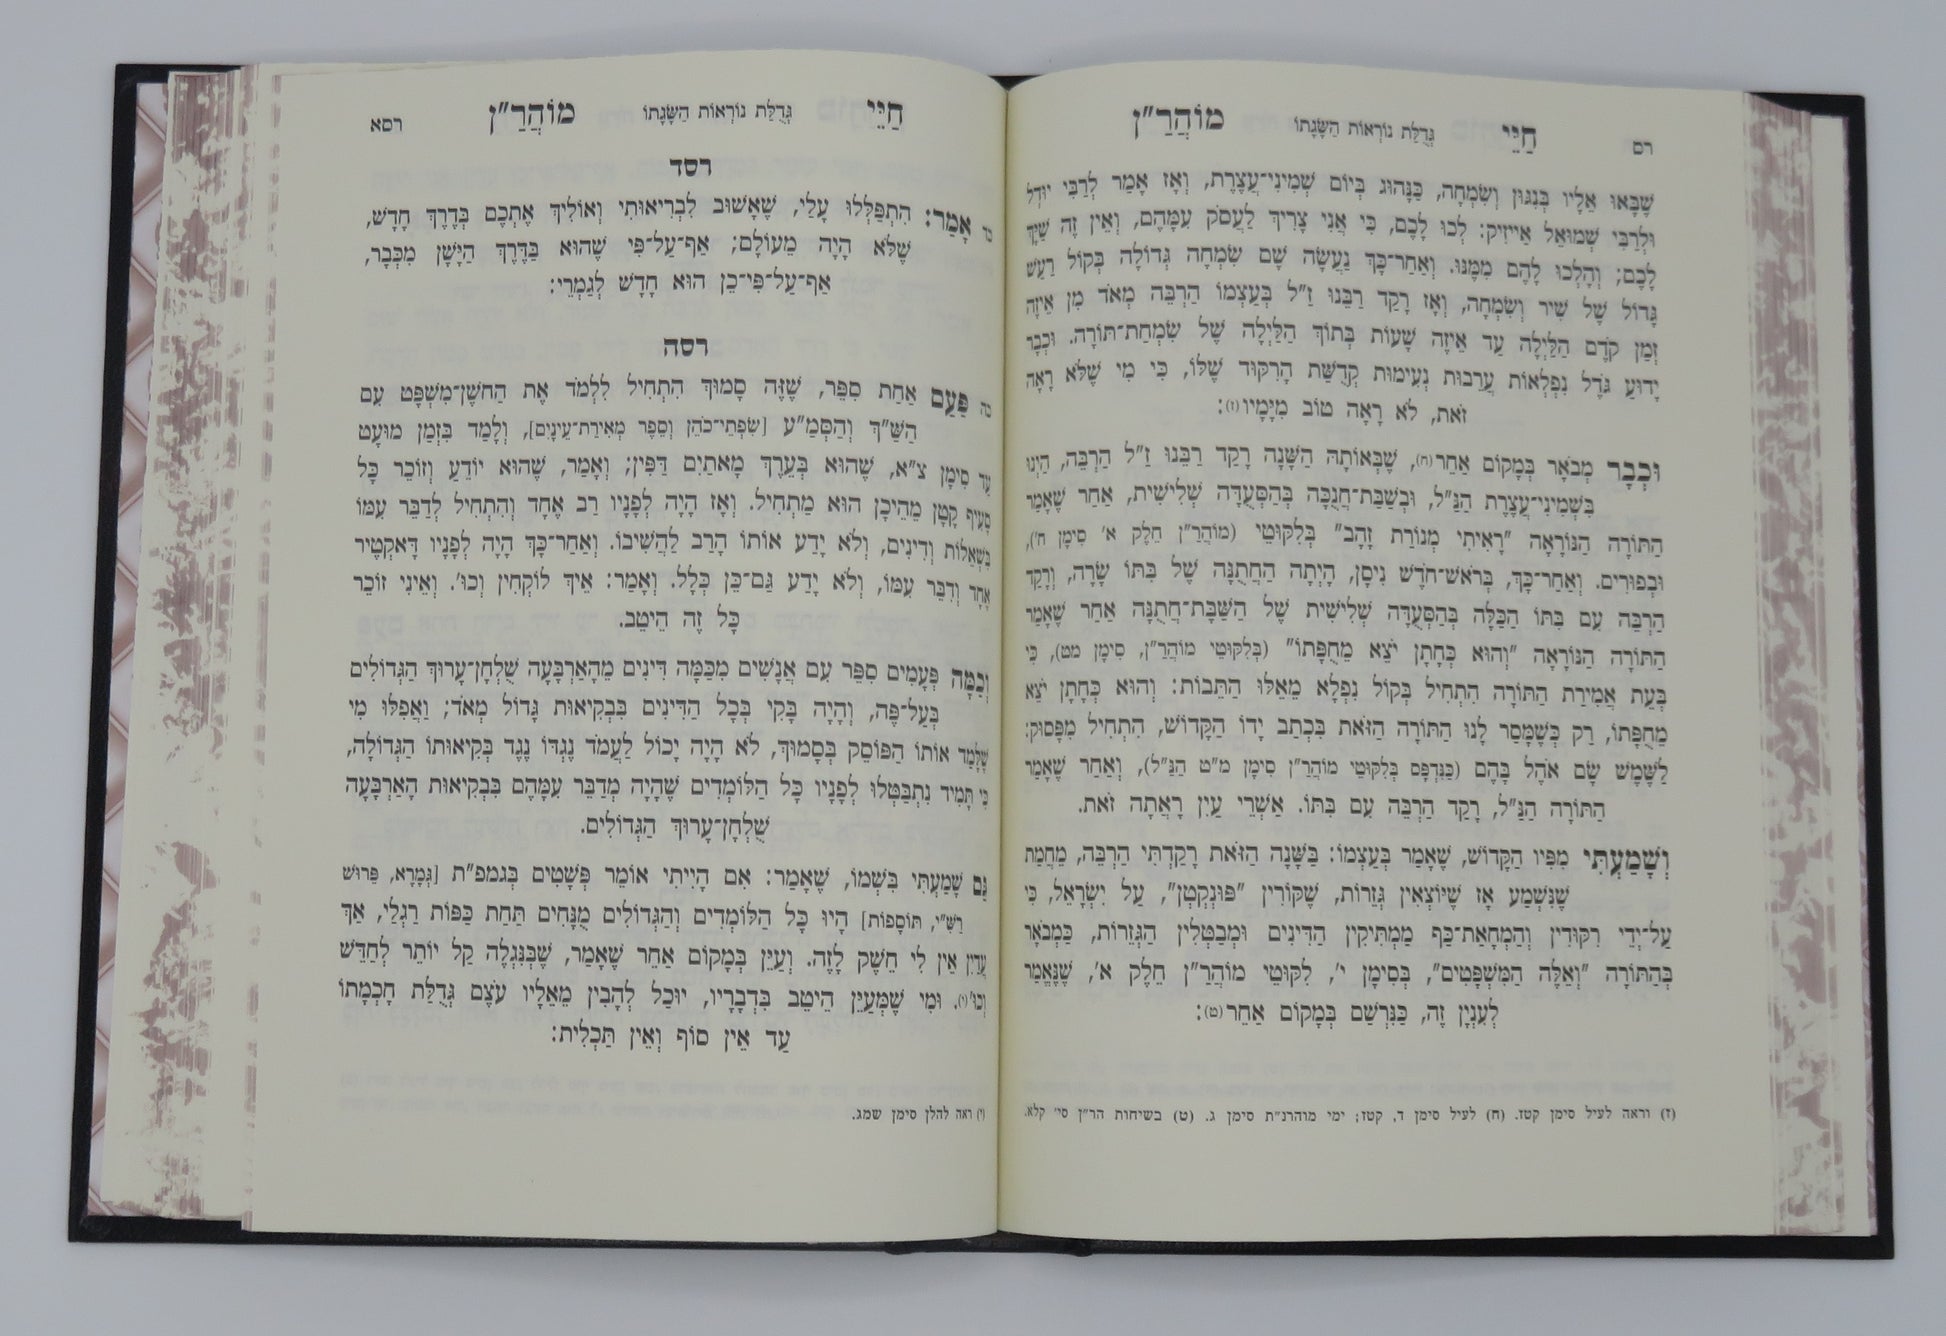 רס
חַיֵּי גְּדֻלַּת נוֹרְאוֹת הַשָּׂגָתוֹ מוֹהֲרַ"ן
שֶׁבָּאוּ אֵלָיו בְּנִגּוּן וְשִׂמְחָה, כַּנָּהוּג בְּיוֹם שְׁמִינִי־עֲצֶרֶת, וְאָז אָמַר לְרַבִּי יוּדְל
וּלְרַבִּי שְׁמוּאֵל אַייזִיק: לְכוּ לָכֶם, כִּי אֲנִי צָרִיךְ לַעֲסֹק עִמָּהֶם, וְאֵין זֶה שַׁיָּךְ
לָכֶם; וְהָלְכוּ לָהֶם מִמֶּנּוּ. וְאַחַר־כָּךְ נַעֲשָׂה שָׁם שִׂמְחָה גְּדוֹלָה בְּקוֹל רַעַשׁ
גָּדוֹל שֶׁל שִׁיר וְשִׂמְחָה, וְאָז רָקַד רַבֵּנוּ זַ"ל בְּעַצְמוֹ הַרְבֵּה מְאֹד מִן אֵיזֶה
זְמַן קֹדֶם הַלַּיְלָה עַד אֵיזֶה שָׁעוֹת בְּתוֹךְ הַלַּיְלָה שֶׁל שִׂמְחַת־תּוֹרָה. וּכְבָר
יָדוּעַ גֹּדֶל נִפְלְאוֹת עֲרֵבוּת נְעִימוּת קְדֻשַּׁת הָרִקּוּד שֶׁלּוֹ, כִּי מִי שֶׁלֹּא רָאָה
זֹאת, לֹא רָאָה טוֹב מִיָּמָיו(ז):
וּכְבָר מְבֹאָר בְּמָקוֹם אַחֵר(ח), שֶׁבְּאוֹתָהּ הַשָּׁנָה רָקַד רַבֵּנוּ זַ"ל הַרְבֵּה, הַיְנוּ
בִּשְׁמִינִי־עֲצֶרֶת הַנַּ"ל, וּבְשַׁבַּת־חֲנֻכָּה בְּהַסְּעֻדָּה שְׁלִישִׁית, אַחַר שֶׁאָמַר
הַתּוֹרָה הַנּוֹרָאָה "רָאִיתִי מְנוֹרַת זָהָב" בְּלִקּוּטֵי (מוֹהֲרַ"ן חֵלֶק א' סִימָן ח'),
וּבְפוּרִים. וְאַחַר־כָּךְ, בְּרֹאשׁ־חֹדֶשׁ נִיסָן, הָיְתָה הַחֲתֻנָּה שֶׁל בִּתּוֹ שָׂרָה, וְרָקַד
הַרְבֵּה עִם בִּתּוֹ הַכַּלָּה בְּהַסְּעֻדָּה שְׁלִישִׁית שֶׁל הַשַּׁבַּת־חֲתֻנָּה אַחַר שֶׁאָמַר
הַתּוֹרָה הַנּוֹרָאָה "וְהוּא כְּחָתָן יֹצֵא מֵחֻפָּתוֹ" (בְּלִקּוּטֵי מוֹהֲרַ"ן, סִימָן מט), כִּי
בְּעֵת אֲמִירַת הַתּוֹרָה הִתְחִיל בְּקוֹל נִפְלָא מֵאֵלּוּ הַתֵּבוֹת: וְהוּא כְּחָתָן יֹצֵא
מֵחֻפָּתוֹ, רַק כְּשֶׁמָּסַר לָנוּ הַתּוֹרָה הַזֹּאת בִּכְתַב יָדוֹ הַקָּדוֹשׁ, הִתְחִיל מִפָּסוּק:
לַשֶּׁמֶשׁ שָׂם אֹהֶל בָּהֶם (כַּנִּדְפָּס בְּלִקּוּטֵי מוֹהֲרַ"ן סִימָן מ"ט הַנַּ"ל), וְאַחַר שֶׁאָמַר
הַתּוֹרָה הַנַּ"ל, רָקַד הַרְבֵּה עִם בִּתּוֹ. אַשְׁרֵי עַיִן רָאֲתָה זֹאת.
וְשָׁמַעְתִּי מִפִּיו הַקָּדוֹשׁ, שֶׁאָמַר בְּעַצְמוֹ: בַּשָּׁנָה הַזֹּאת רָקַדְתִּי הַרְבֵּה, מֵחֲמַת
שֶׁנִּשְׁמַע אָז שֶׁיּוֹצְאִין גְּזֵרוֹת, שֶׁקּוֹרִין "פּוּנְקְטִן", עַל יִשְׂרָאֵל, כִּי
עַל־יְדֵי רִקּוּדִין וְהַמְחָאַת־כַּף מַמְתִּיקִין הַדִּינִים וּמְבַטְּלִין הַגְּזֵרוֹת, כַּמְבֹאָר
בְּהַתּוֹרָה "וְאֵלֶּה הַמִּשְׁפָּטִים", בְּסִימָן י', לִקּוּטֵי מוֹהֲרַ"ן חֵלֶק א', שֶׁנֶּאֱמַר
לְעִנְיָן זֶה, כַּנִּרְשַׁם בְּמָקוֹם אַחֵר(ט):
(ז) וראה לעיל סימן קטז. (ח) לעיל סימן ד, קטז; ימי מוהרנ"ת סימן ג. (ט) בשיחות הר"ן סי' קלא.
חַיֵּי גְּדֻלַּת נוֹרְאוֹת הַשָּׂגָתוֹ מוֹהֲרַ"ן רסא
רסד
כד אָמַר: הִתְפַּלְּלוּ עָלַי, שֶׁאָשׁוּב לִבְרִיאוּתִי וְאוֹלִיךְ אֶתְכֶם בְּדֶרֶךְ חָדָשׁ,
שֶׁלֹּא הָיָה מֵעוֹלָם; אַף־עַל־פִּי שֶׁהוּא בַּדֶּרֶךְ הַיָּשָׁן מִכְּבָר,
אַף־עַל־פִּי־כֵן הוּא חָדָשׁ לְגַמְרֵי:
רסה
כה פַּעַם אַחַת סִפֵּר, שֶׁזֶּה סָמוּךְ הִתְחִיל לִלְמֹד אֶת הַחֹשֶׁן־מִשְׁפָּט עִם
הַשַּׁ"ךְ וְהַסְּמַ"ע [שִׂפְתֵי־כֹהֵן וְסֵפֶר מְאִירַת־עֵינַיִם], וְלָמַד בִּזְמַן מוּעָט
עַד סִימָן צ"א, שֶׁהוּא בְּעֵרֶךְ מָאתַיִם דַּפִּין; וְאָמַר, שֶׁהוּא יוֹדֵעַ וְזוֹכֵר כָּל
סָעִיף קָטָן מֵהֵיכָן הוּא מַתְחִיל. וְאָז הָיָה לְפָנָיו רַב אֶחָד וְהִתְחִיל לְדַבֵּר עִמּוֹ
בִּשְׁאֵלוֹת וְדִינִים, וְלֹא יָדַע אוֹתוֹ הָרַב לַהֲשִׁיבוֹ. וְאַחַר־כָּךְ הָיָה לְפָנָיו דָּאקְטֶיר
אֶחָד וְדִבֵּר עִמּוֹ, וְלֹא יָדַע גַּם־כֵּן כְּלָל. וְאָמַר: אֵיךְ לוֹקְחִין וְכוּ'. וְאֵינִי זוֹכֵר
כָּל זֶה הֵיטֵב.
וְכַמָּה פְּעָמִים סִפֵּר עִם אֲנָשִׁים מִכַּמָּה דִּינִים מֵהָאַרְבָּעָה שֻׁלְחָן־עָרוּךְ הַגְּדוֹלִים
בְּעַל־פֶּה, וְהָיָה בָּקִי בְּכָל הַדִּינִים בִּבְקִיאוּת גָּדוֹל מְאֹד; וַאֲפִלּוּ מִי
שֶׁלָּמַד אוֹתוֹ הַפּוֹסֵק בְּסָמוּךְ, לֹא הָיָה יָכוֹל לַעֲמֹד נֶגְדּוֹ נֶגֶד בְּקִיאוּתוֹ הַגְּדוֹלָה,
כִּי תָּמִיד נִתְבַּטְּלוּ לְפָנָיו כָּל הַלּוֹמְדִים שֶׁהָיָה מְדַבֵּר עִמָּהֶם בִּבְקִיאוּת הָאַרְבָּעָה
שֻׁלְחָן־עָרוּךְ הַגְּדוֹלִים.
גַּם שָׁמַעְתִּי בִּשְׁמוֹ, שֶׁאָמַר: אִם הָיִיתִי אוֹמֵר פְּשָׁטִים בִּגמפ"ת [גְּמָרָא, פֵּרוּשׁ
רַשִׁ"י, תּוֹסָפוֹת] הָיוּ כָּל הַלּוֹמְדִים וְהַגְּדוֹלִים מֻנָּחִים תַּחַת כַּפּוֹת רַגְלַי, אַךְ
עֲדַיִן אֵין לִי חֵשֶׁק לָזֶה. וְעַיֵּן בְּמָקוֹם אַחֵר שֶׁאָמַר, שֶׁבְּנִגְלֶה קַל יוֹתֵר לְחַדֵּשׁ
וְכוּ'(י). וּמִי שֶׁמְּעַיֵּן הֵיטֵב בִּדְבָרָיו, יוּכַל לְהָבִין מֵאֵלָיו עֹצֶם גְּדֻלַּת חָכְמָתוֹ
עַד אֵין סוֹף וְאֵין תַּכְלִית:
(י) ראה להלן סימן שמג.